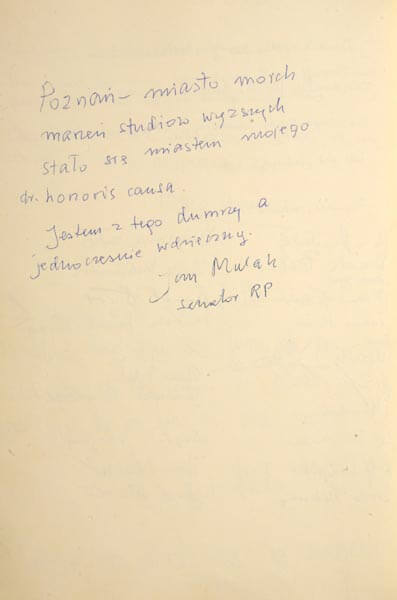 Poznań – miasto moich
marzeń studiów wyższych
stało się miastem mojego
dr. honoris causa.
Jestem z tego dumny a
jednocześnie wdzięczny.
Jan Mulak
senator RP